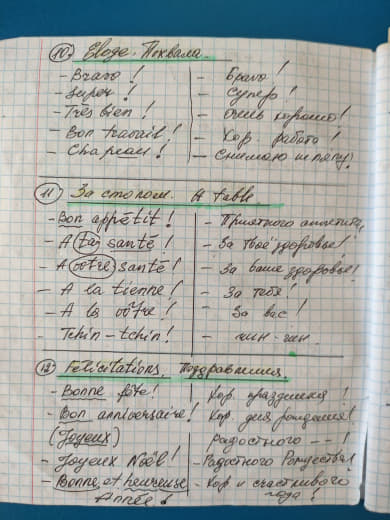 10. Eloge. Похвала.
- Bravo! - Браво!
- Super! - Супер!
- Très bien! - Очень хорошо!
- Bon travail! - Хор. работа!
- Chapeau! - Снимаю шляпу!
11 За столом. A table.
- Bon appétit! - Приятного аппетита,
- A ta santé! - За твоё здоровье!
- A votre santé! - За ваше здоровье!
- A la tienne! - За тебя!
- A la vôtre! - За вас!
- Tchin-tchin! - чин-чин.
12 Felicitations. Поздравления.
- Bonne fête! - Хор. праздника!
- Bon anniversaire! Хор. дня рождения!
(Joyeux) радостного --!
- Joyeux Noël! - Радостного Рождества!
- Bonne et heureuse - Хор и счастливого
Année! года!